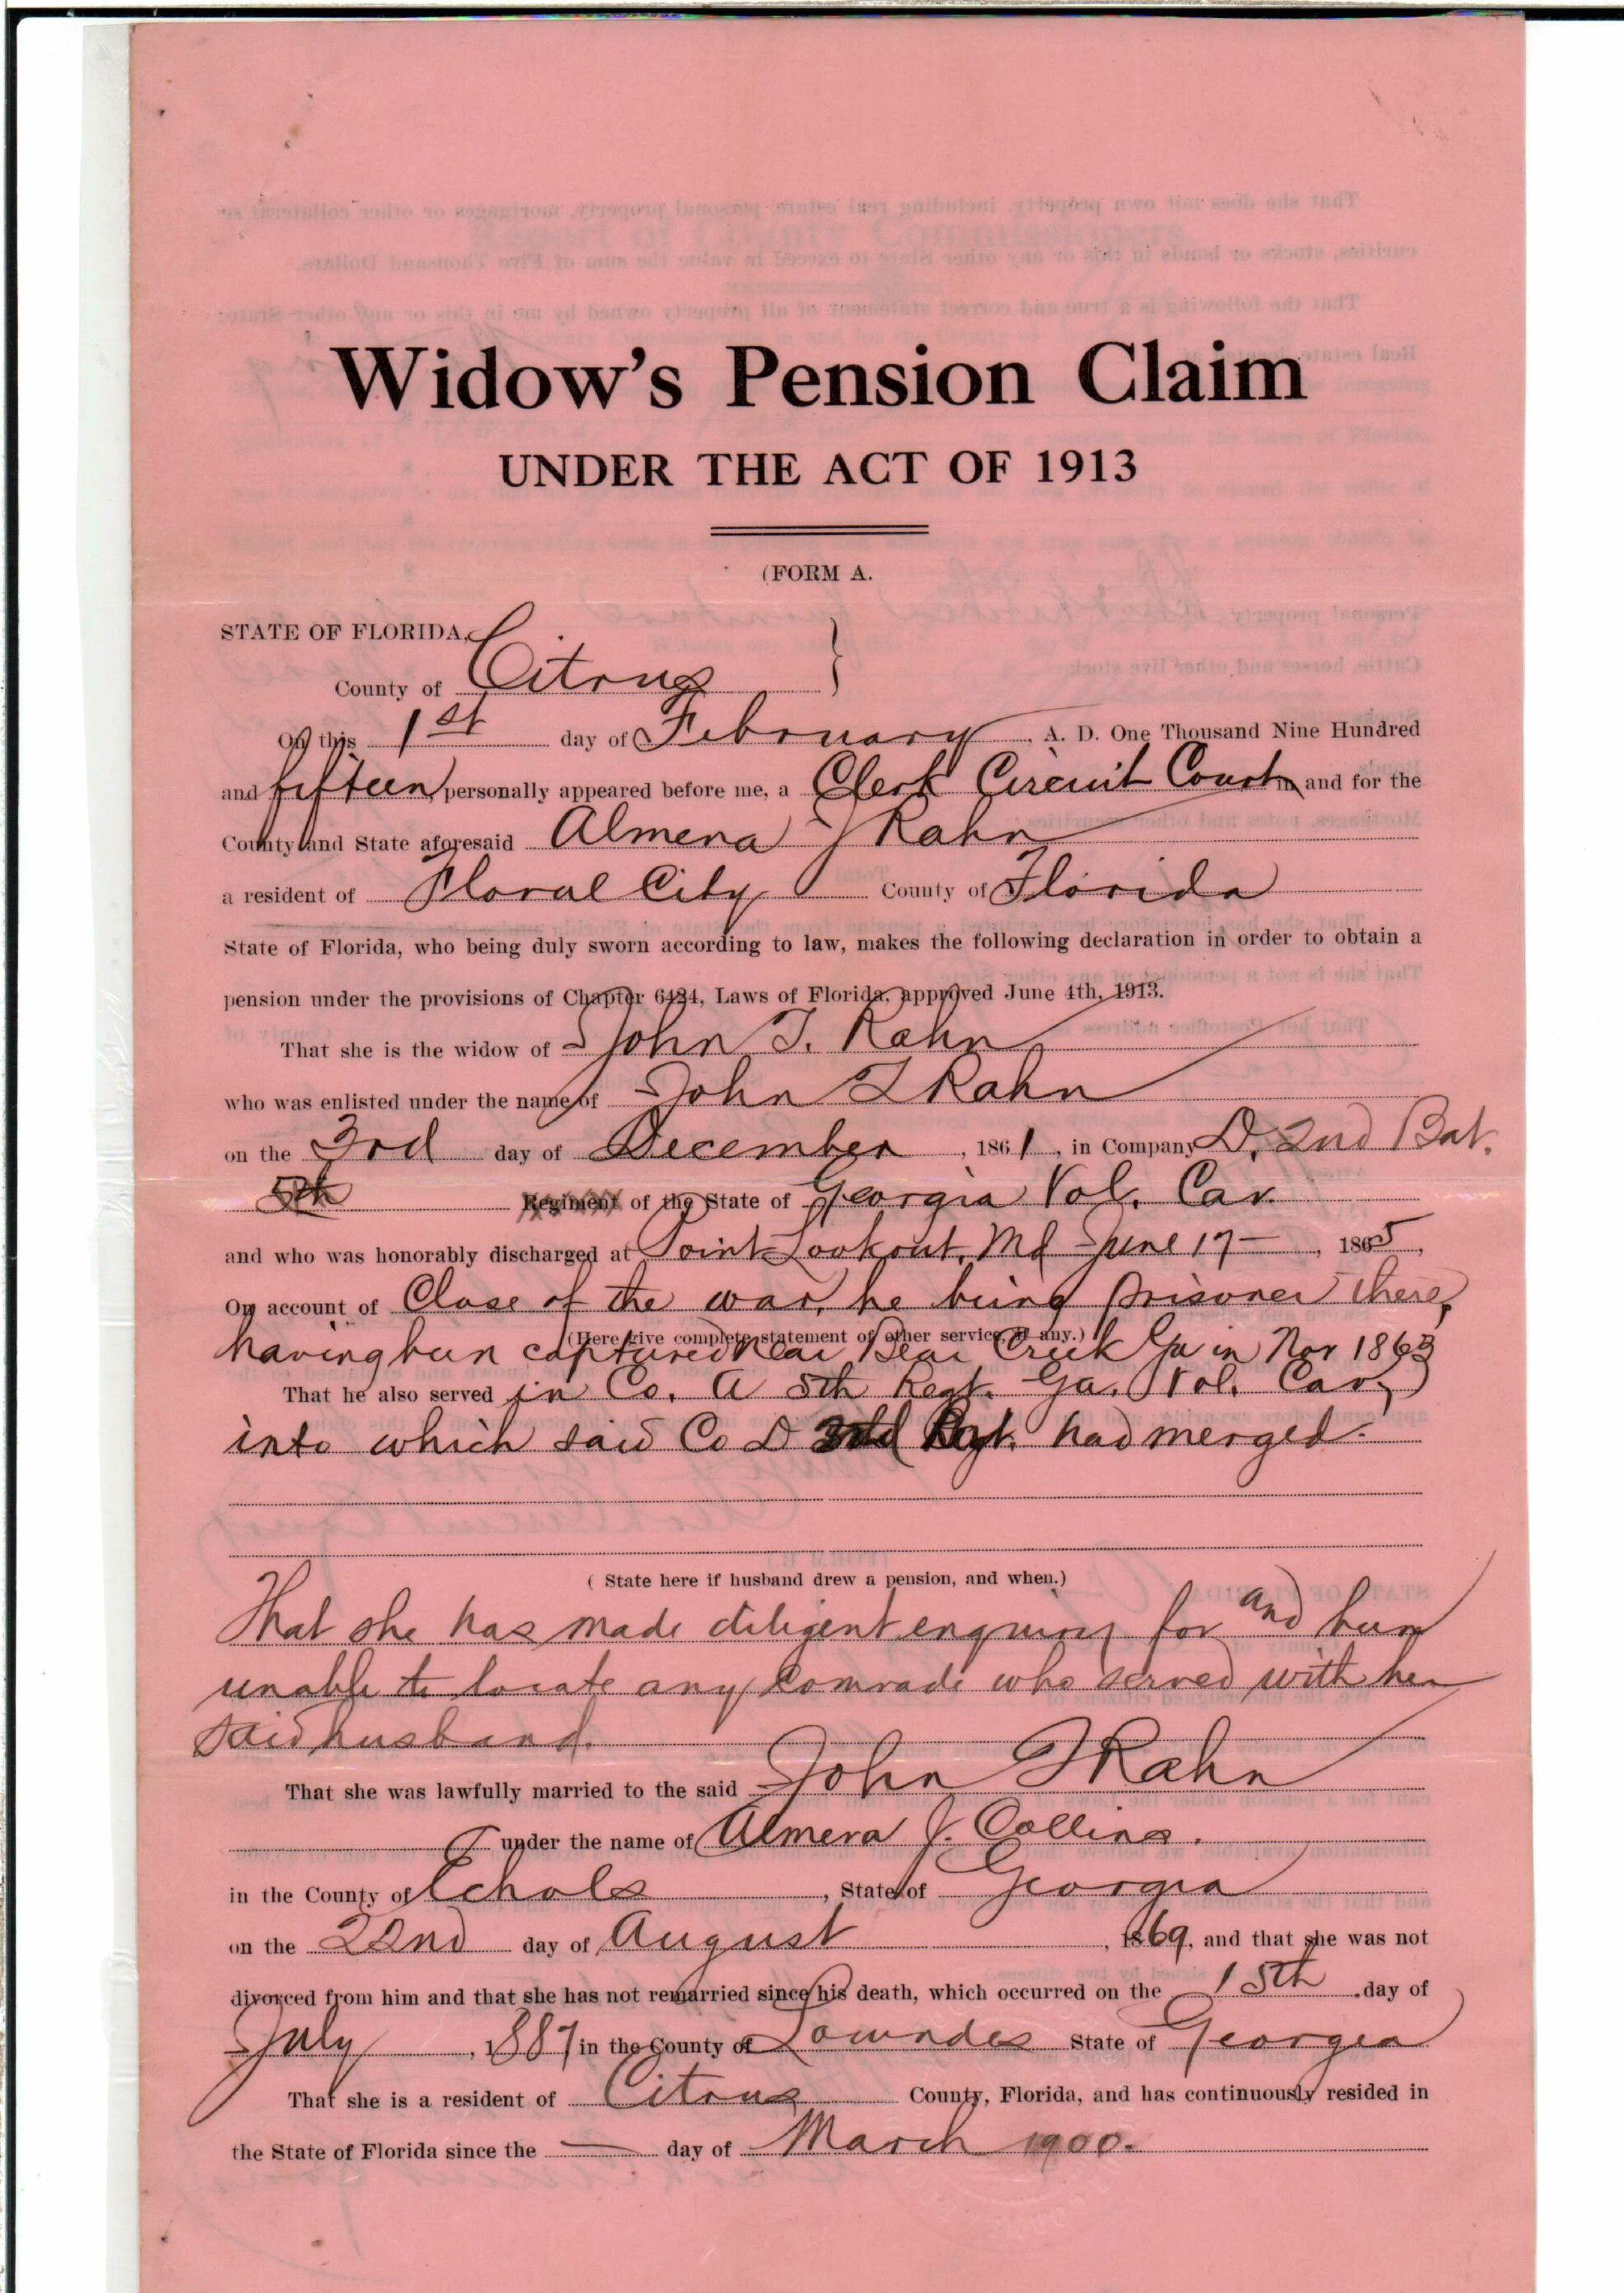 Widow's Pension Claim
UNDER THE ACT OF 1913
(FORM A.
STATE OF FLORIDA,
County of Citrus
On this 1st day of February, A. D. One Thousand Nine Hundred
and fifteen, personally appeared before me, a Clerk Circuit Court in and for the
County and State aforesaid Almena J Rahn
a resident of Floral City County of Florida
State of Florida, who being duly sworn according to law, makes the following declaration in order to obtain a
pension under the provisions of Chapter 6424, Laws of Florida, approved June 4th, 1913.
That she is the widow of John T. Rahn
who was enlisted under the name of John T Rahn
on the 3rd day of December, 1861, in Company D, 2nd Bat.
5th Regiment of the State of Georgia Vol. Cav.
and who was honorably discharged at Point Lookout, Md June 17-, 1865,
On account of Close of the war, he being prisoner there,
(Here give complete statement of other service, if any.)
having been captured near Bear Creek Ga in Nov 1863
That he also served in Co. A 5th Regt. Ga. Vol. Cav,
into which said Co D had merged.
( State here if husband drew a pension, and when.)
That she has made diligent enquiry for and been
unable to locate any comrade who served with her
said husband.
That she was lawfully married to the said John T Rahn
under the name of Almera J. Collins.
in the County of Echols, State of Georgia
on the 22nd day of August, 1869, and that she was not
divorced from him and that she has not remarried since his death, which occurred on the 15th day of
July, 1887 in the County of Lowndes State of Georgia
That she is a resident of Citrus County, Florida, and has continuously resided in
the State of Florida since the — day of March 1900.